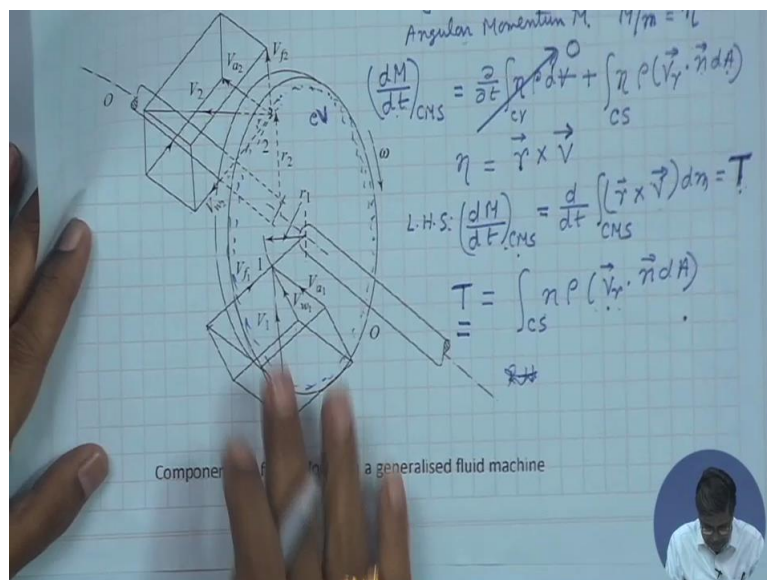 Angular Momentum M. M/m = η
(dM/dt)CMS = ∂/∂t ∫CV ηρdV + ∫CS ηρ(V⃗r · n⃗ dA)
0
η = r⃗ × V⃗
L.H.S: (dM/dt)CMS = d/dt ∫CMS (r⃗ × V⃗) dm = T
T = ∫CS ηρ(V⃗r · n⃗ dA)
Va2
Vf2
V2
O
2
r2
cV
ω
r1
Vw2
Vf1
1
Va1
Vw1
V1
O
Component a generalised fluid machine